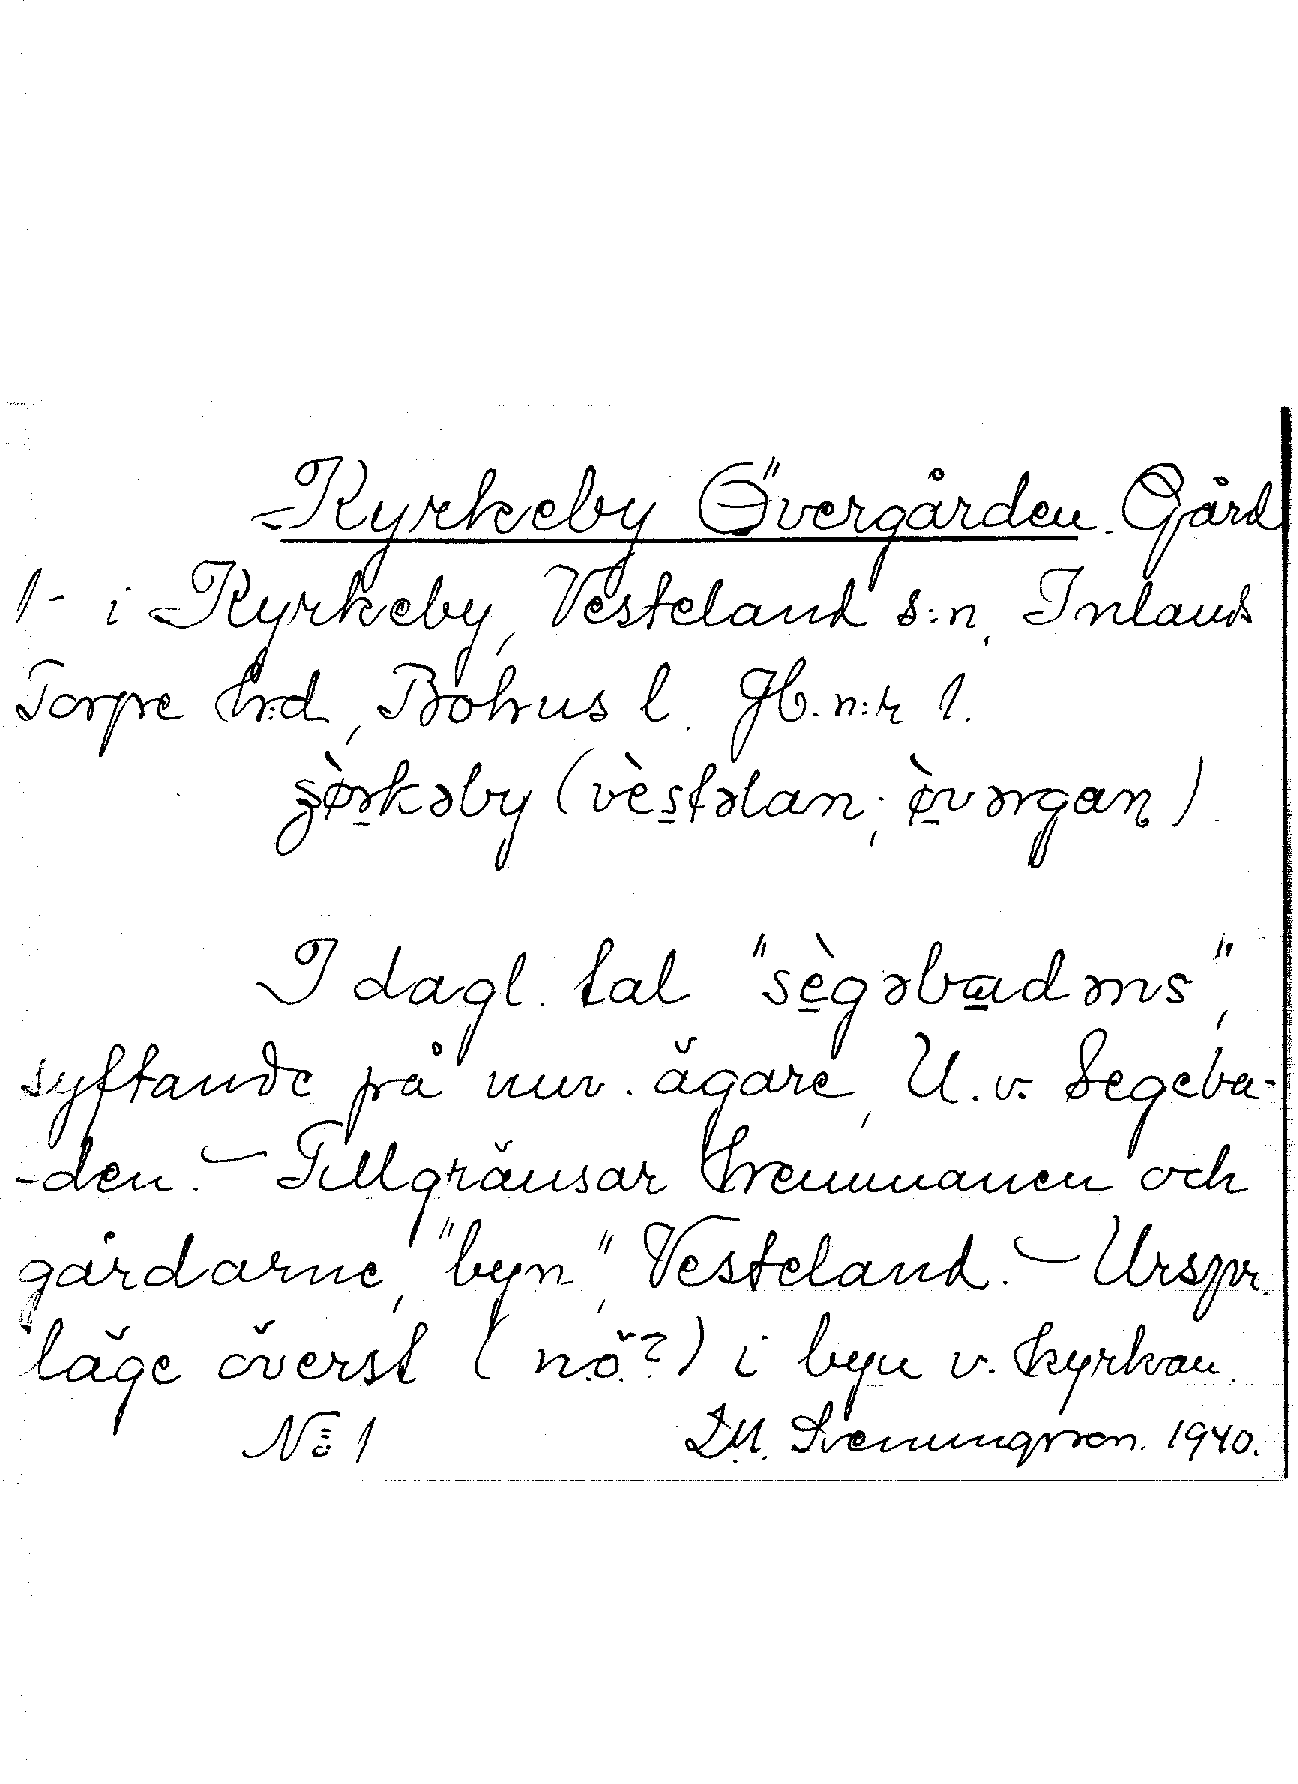 Kyrkeby Övergården. Gård
1- i Kyrkeby, Vesteland s:n, Inlands
Torpe hrd, Bohus l. Jb. n:r 1.
ʒø̀rkəby (vèstəlan; ø̀vərgaɳ).
I dagl. tal "sègəbadəns",
syftande på nuv. ägare, U. v. Segeba-
-den. – Tillgränsar Hremmanen och
gårdarne, "byn", Vesteland. – Urspr.
läge överst (n.ö.?) i byn v. kyrkan.
No 1 D.M. Svenungsson. 1940.